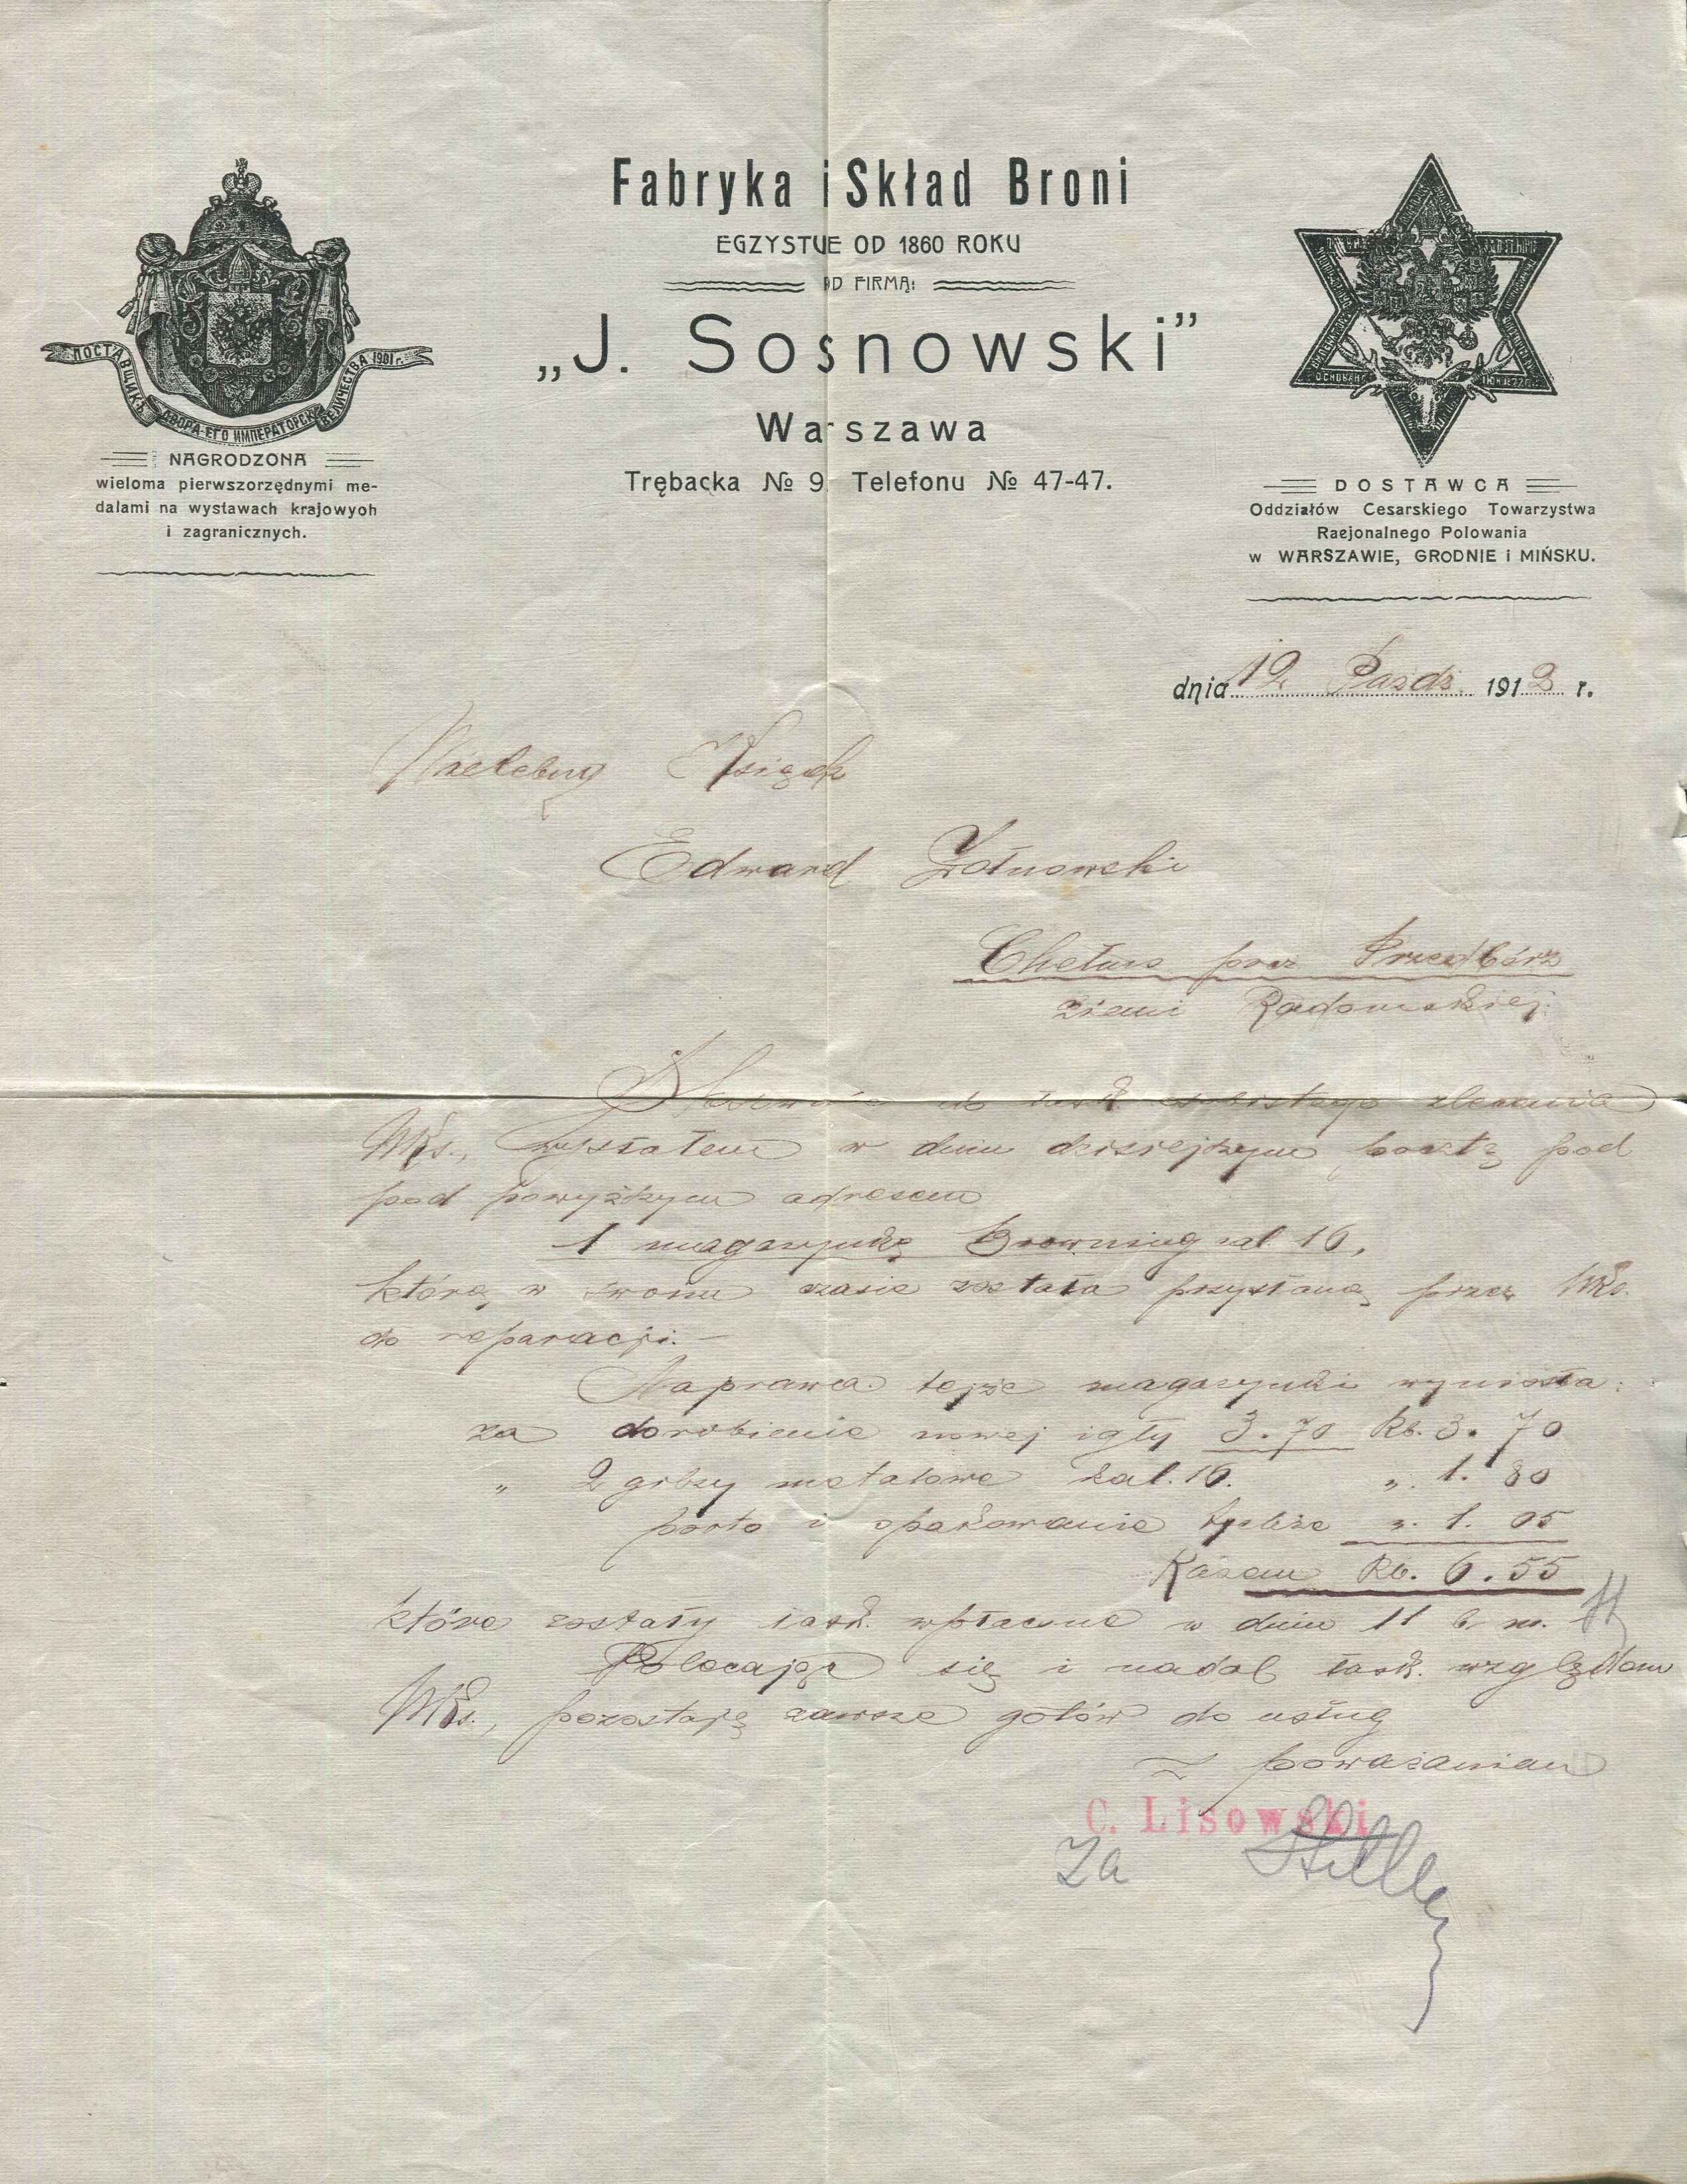 Fabryka i Skład Broni
EGZYSTUE OD 1860 ROKU
OD FIRMĄ:
„J. Sosnowski”
Warszawa
Trębacka № 9. Telefonu № 47-47.
ПОСТАВЩИКЪ ДВОРА ЕГО ИМПЕРАТОРСК ВЕЛИЧЕСТВА 1901 г.
NAGRODZONA
wieloma pierwszorzędnymi me-
dalami na wystawach krajowych
i zagranicznych.
DOSTAWCA
Oddziałów Cesarskiego Towarzystwa
Racjonalnego Polowania
w WARSZAWIE, GRODNIE i MIŃSKU.
dnia 12 Paźdz. 1912 r.
Wielebny Ksiądz
Edward Żółnowski
Przedbórz
ziemi Radomskiej
do łask. osobistego zlecenia
WKs., wysłałem w dniu dzisiejszym pocztą pod
pod powyższym adresem
1 magazynkę Browning kal. 16,
którą w swoim czasie została przysłaną przez WKs.
do reparacji. —
Naprawa tejże magazynki wyniosła:
za dorobienie nowej igły 3.70 Rb. 3.70
„ 2 gilzy metalowe kal. 16. „ 1.80
porto i opakowanie tychże „ 1.05
Razem Rb. 6.55
które zostały łask. wpłacone w dniu 11 b. m.
Polecając się i nadal łask. względom
WKs., pozostaję zawsze gotów do usług
z poważaniem
C. Lisowski
Za